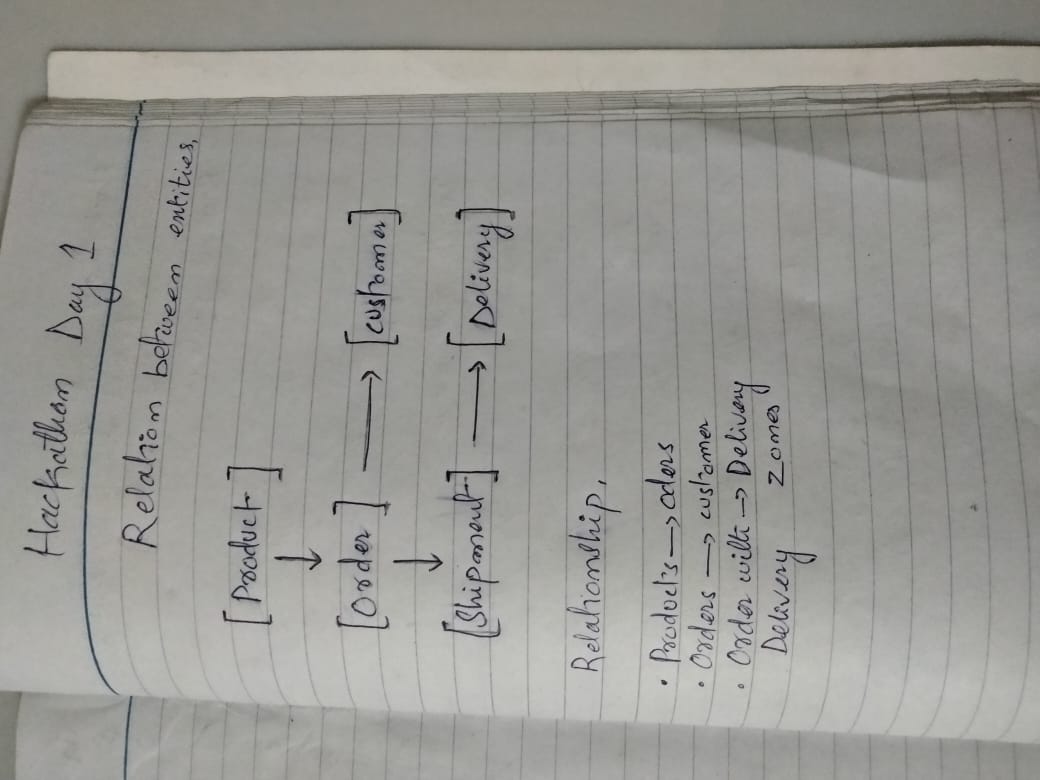 Hackathon Day 1
Relation between entities,
[Product]
↓
[Order] → [customer]
↓
[Shipment] → [Delivery]
Relationship,
• Products → oders
• Orders → customer
• Order with → Delivery
Delivery zones